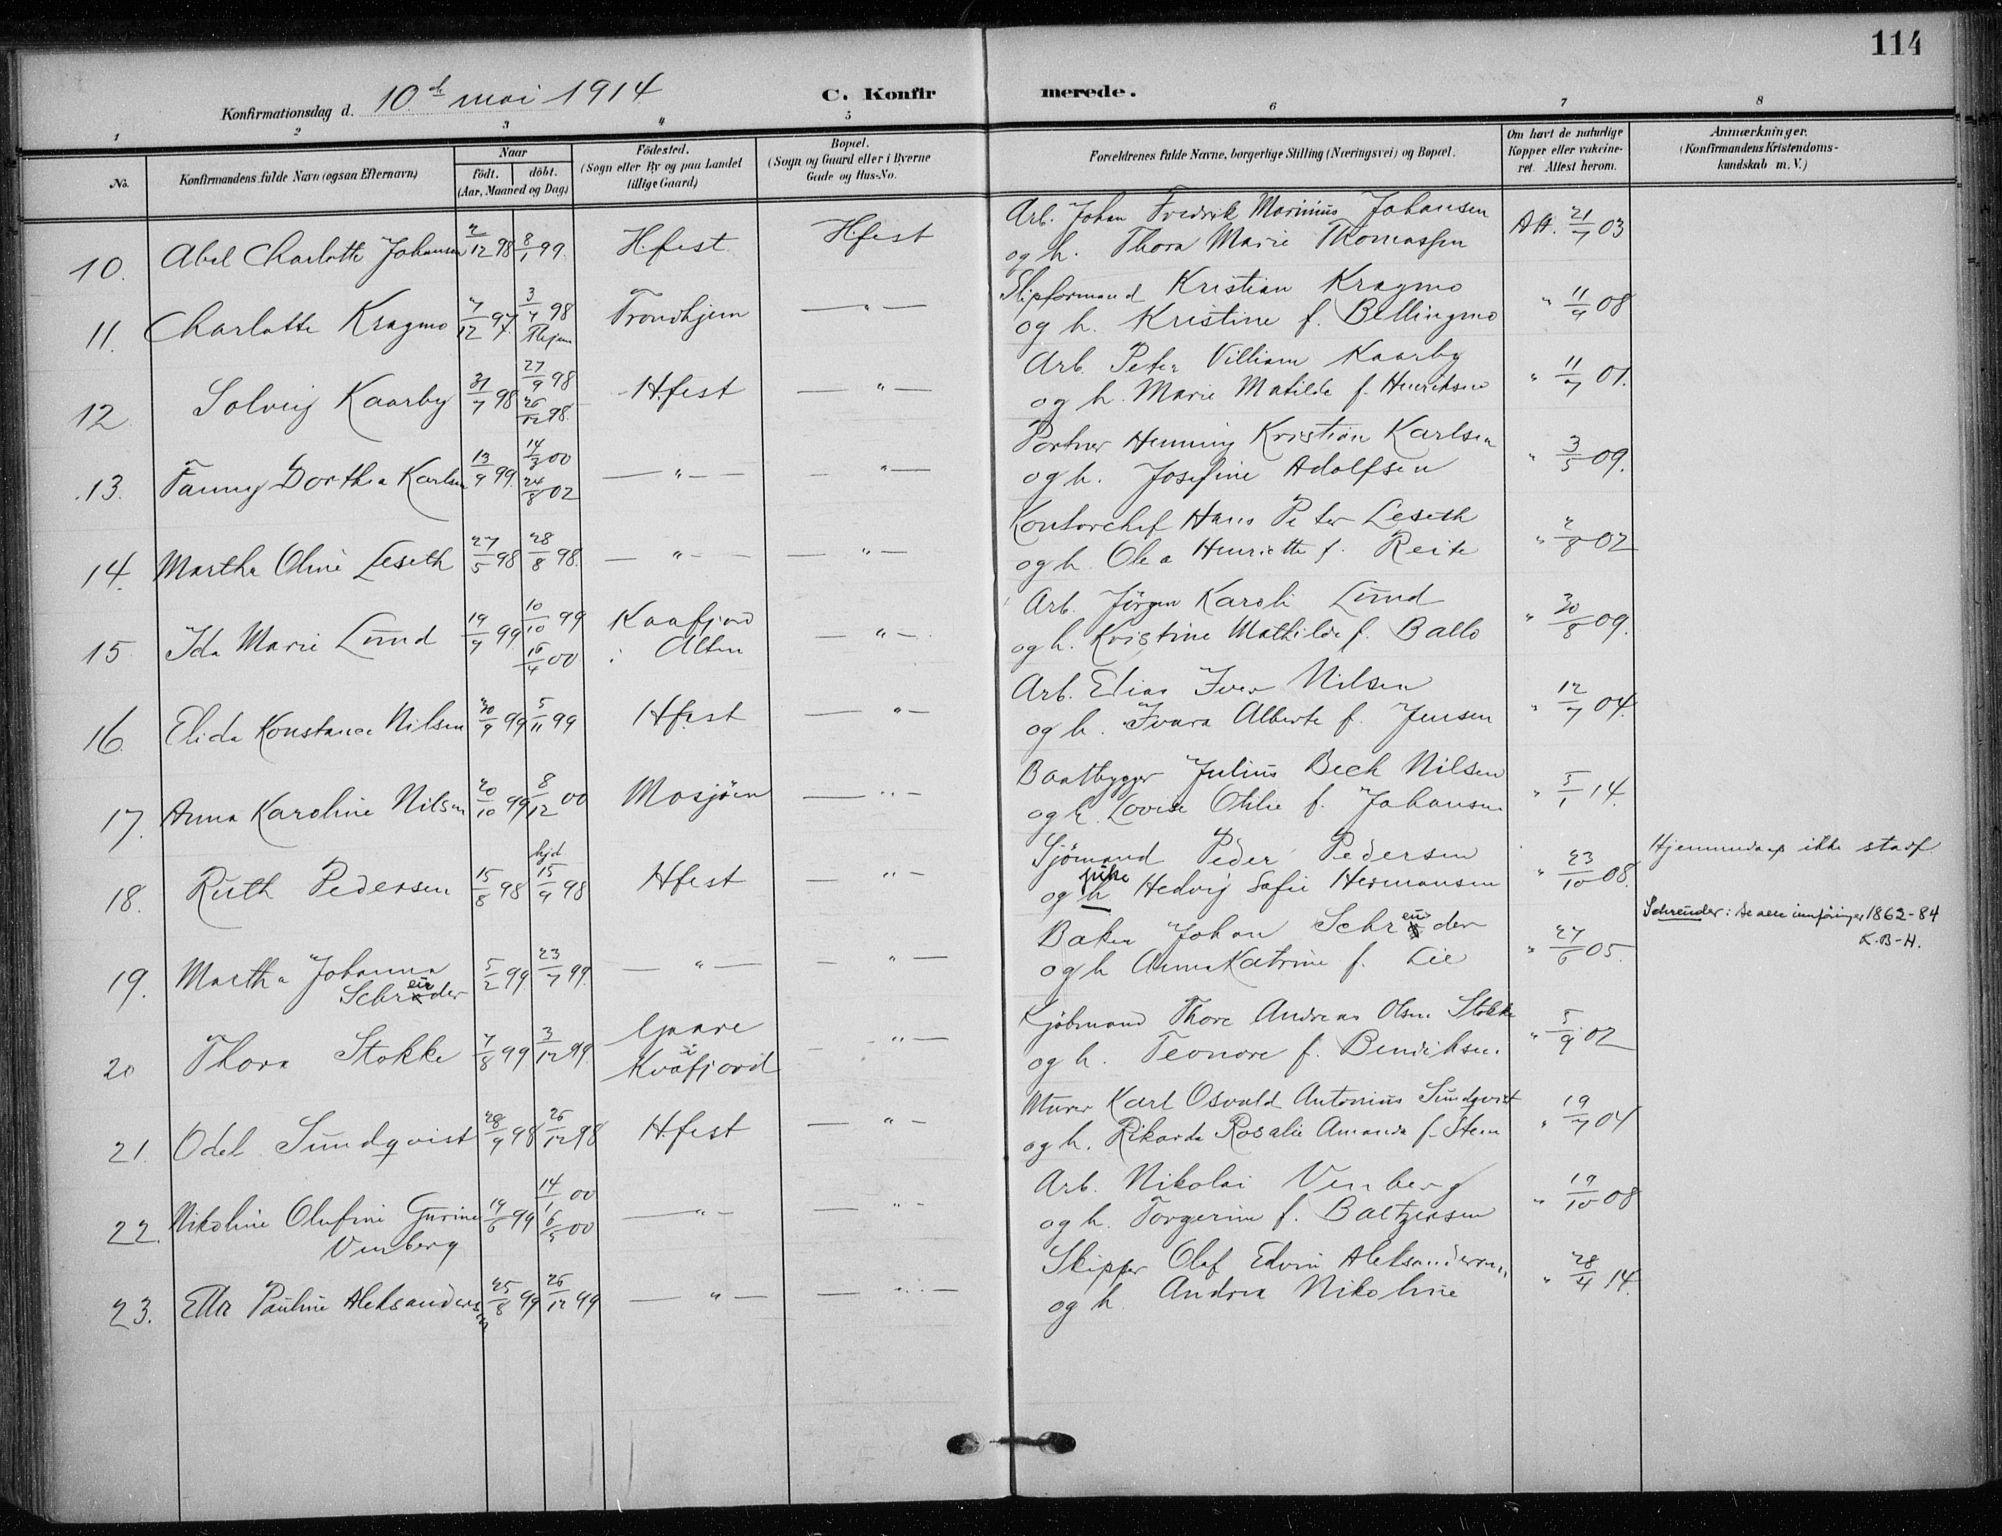 114
Konfirmationsdag d. 10de mai 1914
C. Konfirmerede.
1 2 3 4 5 6 7 8
No.
Konfirmandens fulde Navn (ogsaa Efternavn)
Naar
födt. döbt.
(Aar, Maaned og Dag)
Födested.
(Sogn eller By og paa Landet
tillige Gaard)
Bopæl.
(Sogn og Gaard eller i Byerne
Gade og Hus-No.
Forældrenes fulde Navne, borgerlige Stilling (Næringsvei) og Bopæl.
Om havt de naturlige
Kopper eller vakcine-
ret. Attest herom.
Anmærkninger.
(Konfirmandens Kristendoms-
kundskab m. V.)
10. Abel Charlotte Johansen 2/12 98 8/1 99 H.fest H.fest
Arb. Johan Fredrik Marinius Johansen
og h. Thora Marie Thomassen Att. 21/7 03
11. Charlotte Kragmo 7/12 97 3/4 98 Thjem Trondhjem — " —
Slipformand Kristian Kragmo
og h. Kristine f. Bellingmo " 11/9 08
12 Solveig Kaarby 31/7 98 27/9 98 26/12 98 H.fest — " —
Arb. Peter Villiam Kaarby
og h. Marie Matilde f. Henriksen " 11/7 01.
13. Fanny Dorthea Karlsen 13/9 99 14/3 00 24/8 02 — " — — " —
Portner Henning Kristian Karlsen
og h. Josefine Adolfsen " 3/5 09.
14. Martha Oline Leseth 27/5 98 28/8 98. — " — — " —
Kontorchef Hans Peter Leseth
og h. Olea Henriette f. Reite " 2/8 02
15 Ida Marie Lund 19/9 99 10/10 99 16/4 00 Kaafjord
i Alten — " —
Arb. Jörgen Karoli Lund
og h. Kristine Mathilde f. Ballo " 30/8 09.
16. Elida Konstance Nilsen 30/9 99 5/11 99 Hfest — " —
Arb. Elias Iver Nilsen
og h. Ivara Alberte f. Jensen " 12/7 04.
17. Anna Karoline Nilsen 20/10 99 8/12 00 Mosjöen — " —
Baatbygger Julius Bech Nilsen
og h. Lovise Otilie f. Johansen " 5/1 14.
18. Ruth Pedersen 15/8 98 hjd. 15/9 98 Hfest — " —
Sjömand Peder Pedersen
pike
og h Hedvig Sofie Hermansen " 23/10 08. Hjemmedaap ikke stadf
19. Martha Johanna
Schreuder 5/2 99. 23/7 99. — " — — " —
Baker Johan Schreuder
og h Anna Katrine f. Lie " 27/6 05. Schreuder: se alle innföringer 1862-84
K.B-H.
20 Thora Stokke 7/8 99 3/12 99
Kvæfjord — " —
Kjöbmand Thore Andreas Olsen Stokke
og h. Teonore f. Bendiksen. " 5/9 02
21. Odel Sundqvist 28/9 98 26/12 98 H.fest — " —
Murer Karl Osvald Antonius Sundqvist
og h. Rikarda Rosalie Amanda f. Steen " 19/7 04
22. Nikoline Olufine Gurine
Venberg 19/6 99 14/1 00 6/5 00 — " — — " —
Arb. Nikolai Venberg
og h. Torgerine f. Baltzersen " 19/10 08
23. Etta Pauline Aleksandersen 25/8 99 26/12 99 — " — — " —
Skipper Olaf Edvin Aleksandersen
og h Andrea Nikoline " 28/4 14.